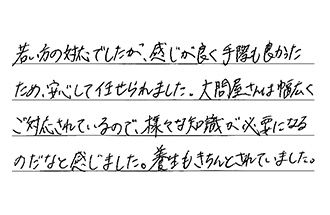 若い方の対応でしたが、感じが良く手際も良かった
ため、安心して任せられました。大問屋さんは幅広く
ご対応されているので、様々な知識が必要になる
のだなと感じました。養生もきちんとされていました。